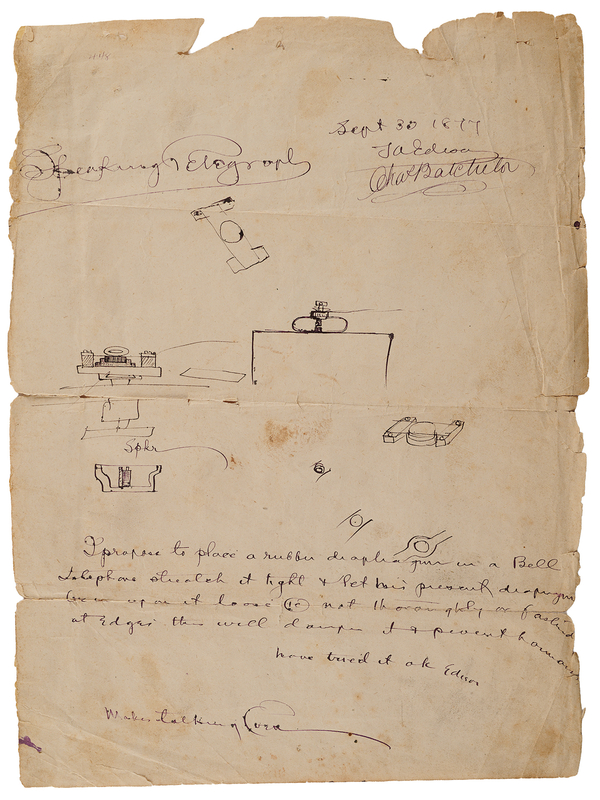 Sept 30 1877
TA Edison
Chas Batchelor
Speaking Telegraph
Spkr
I propose to place a rubber diaphragm in a Bell
Telephone stretch it tight & let his present diaphragm
upon it loose ie not thoroughly fastened
at Edges this will dampen it & prevent harmonics
have tried it ok Edison
Makes talking Good